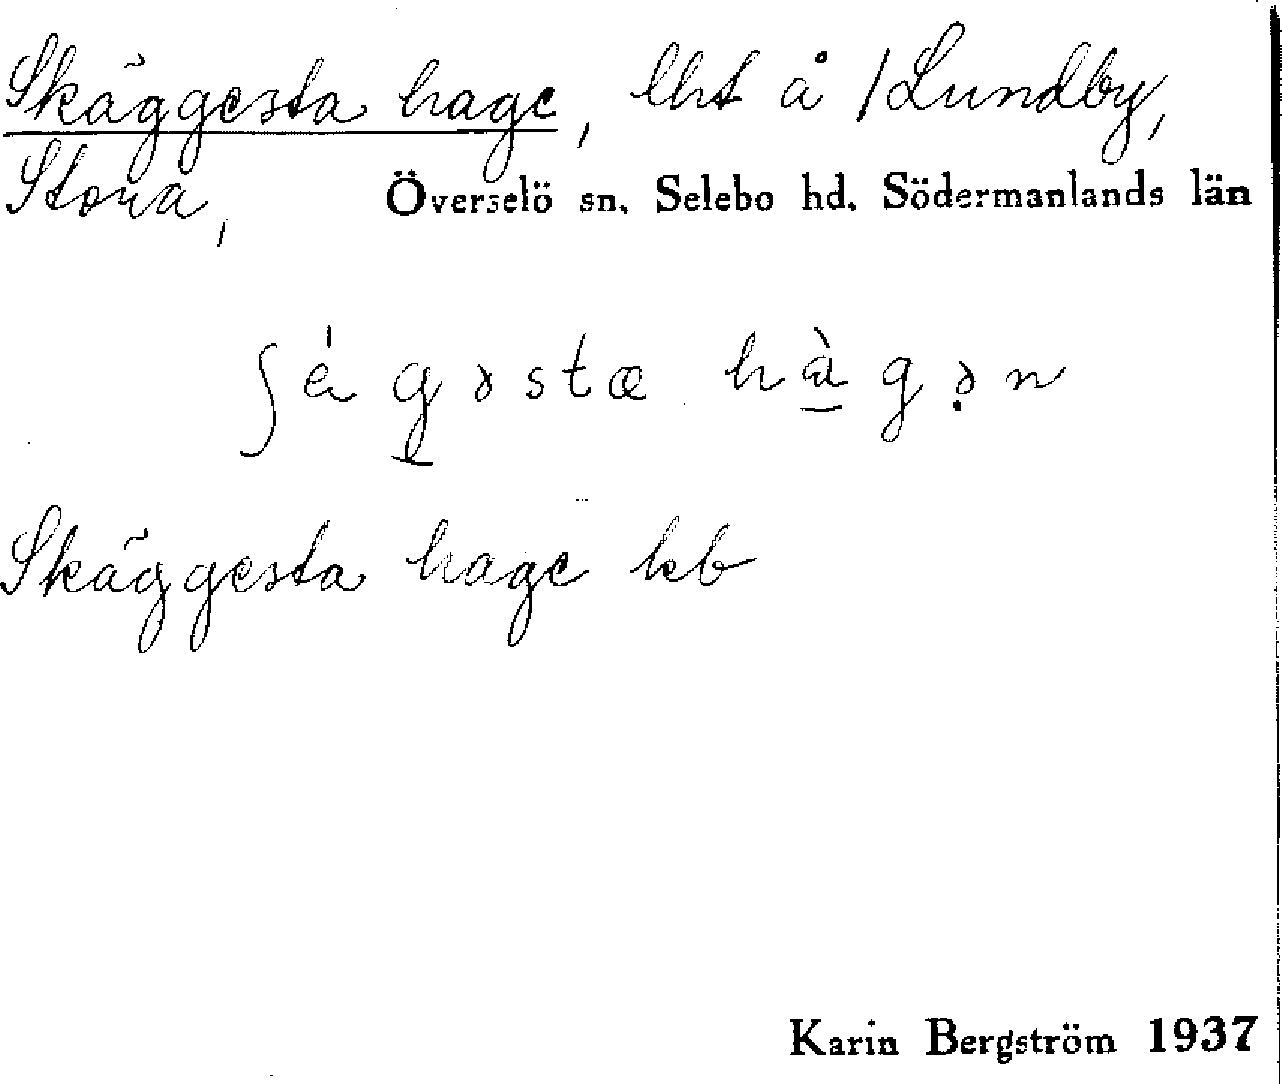 Skäggesta hage, lht å /Lundby,
Stora, Överselö sn. Selebo hd. Södermanlands län
ʃég̲əstæ hà̲gə̣n
Skäggesta hage kb
Karin Bergström 1937